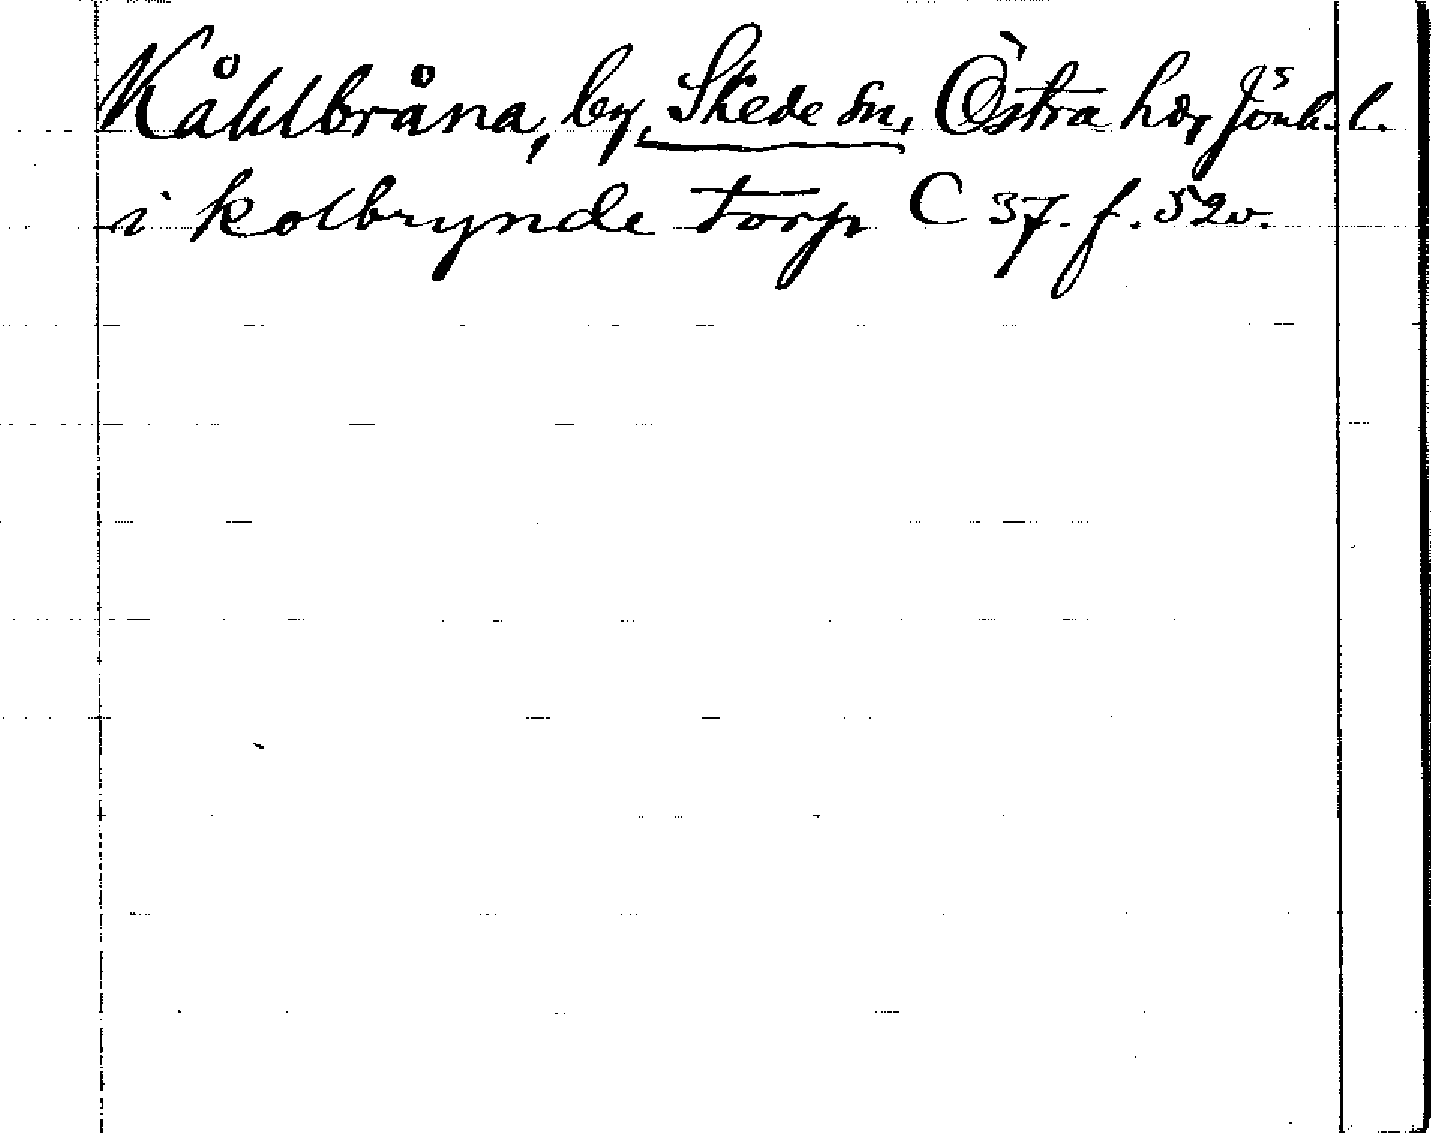 Kåhlbråna, by, Skede sn, Östra hd, Jönk. l.
i kolbrynde torp C 37. f. 52v.